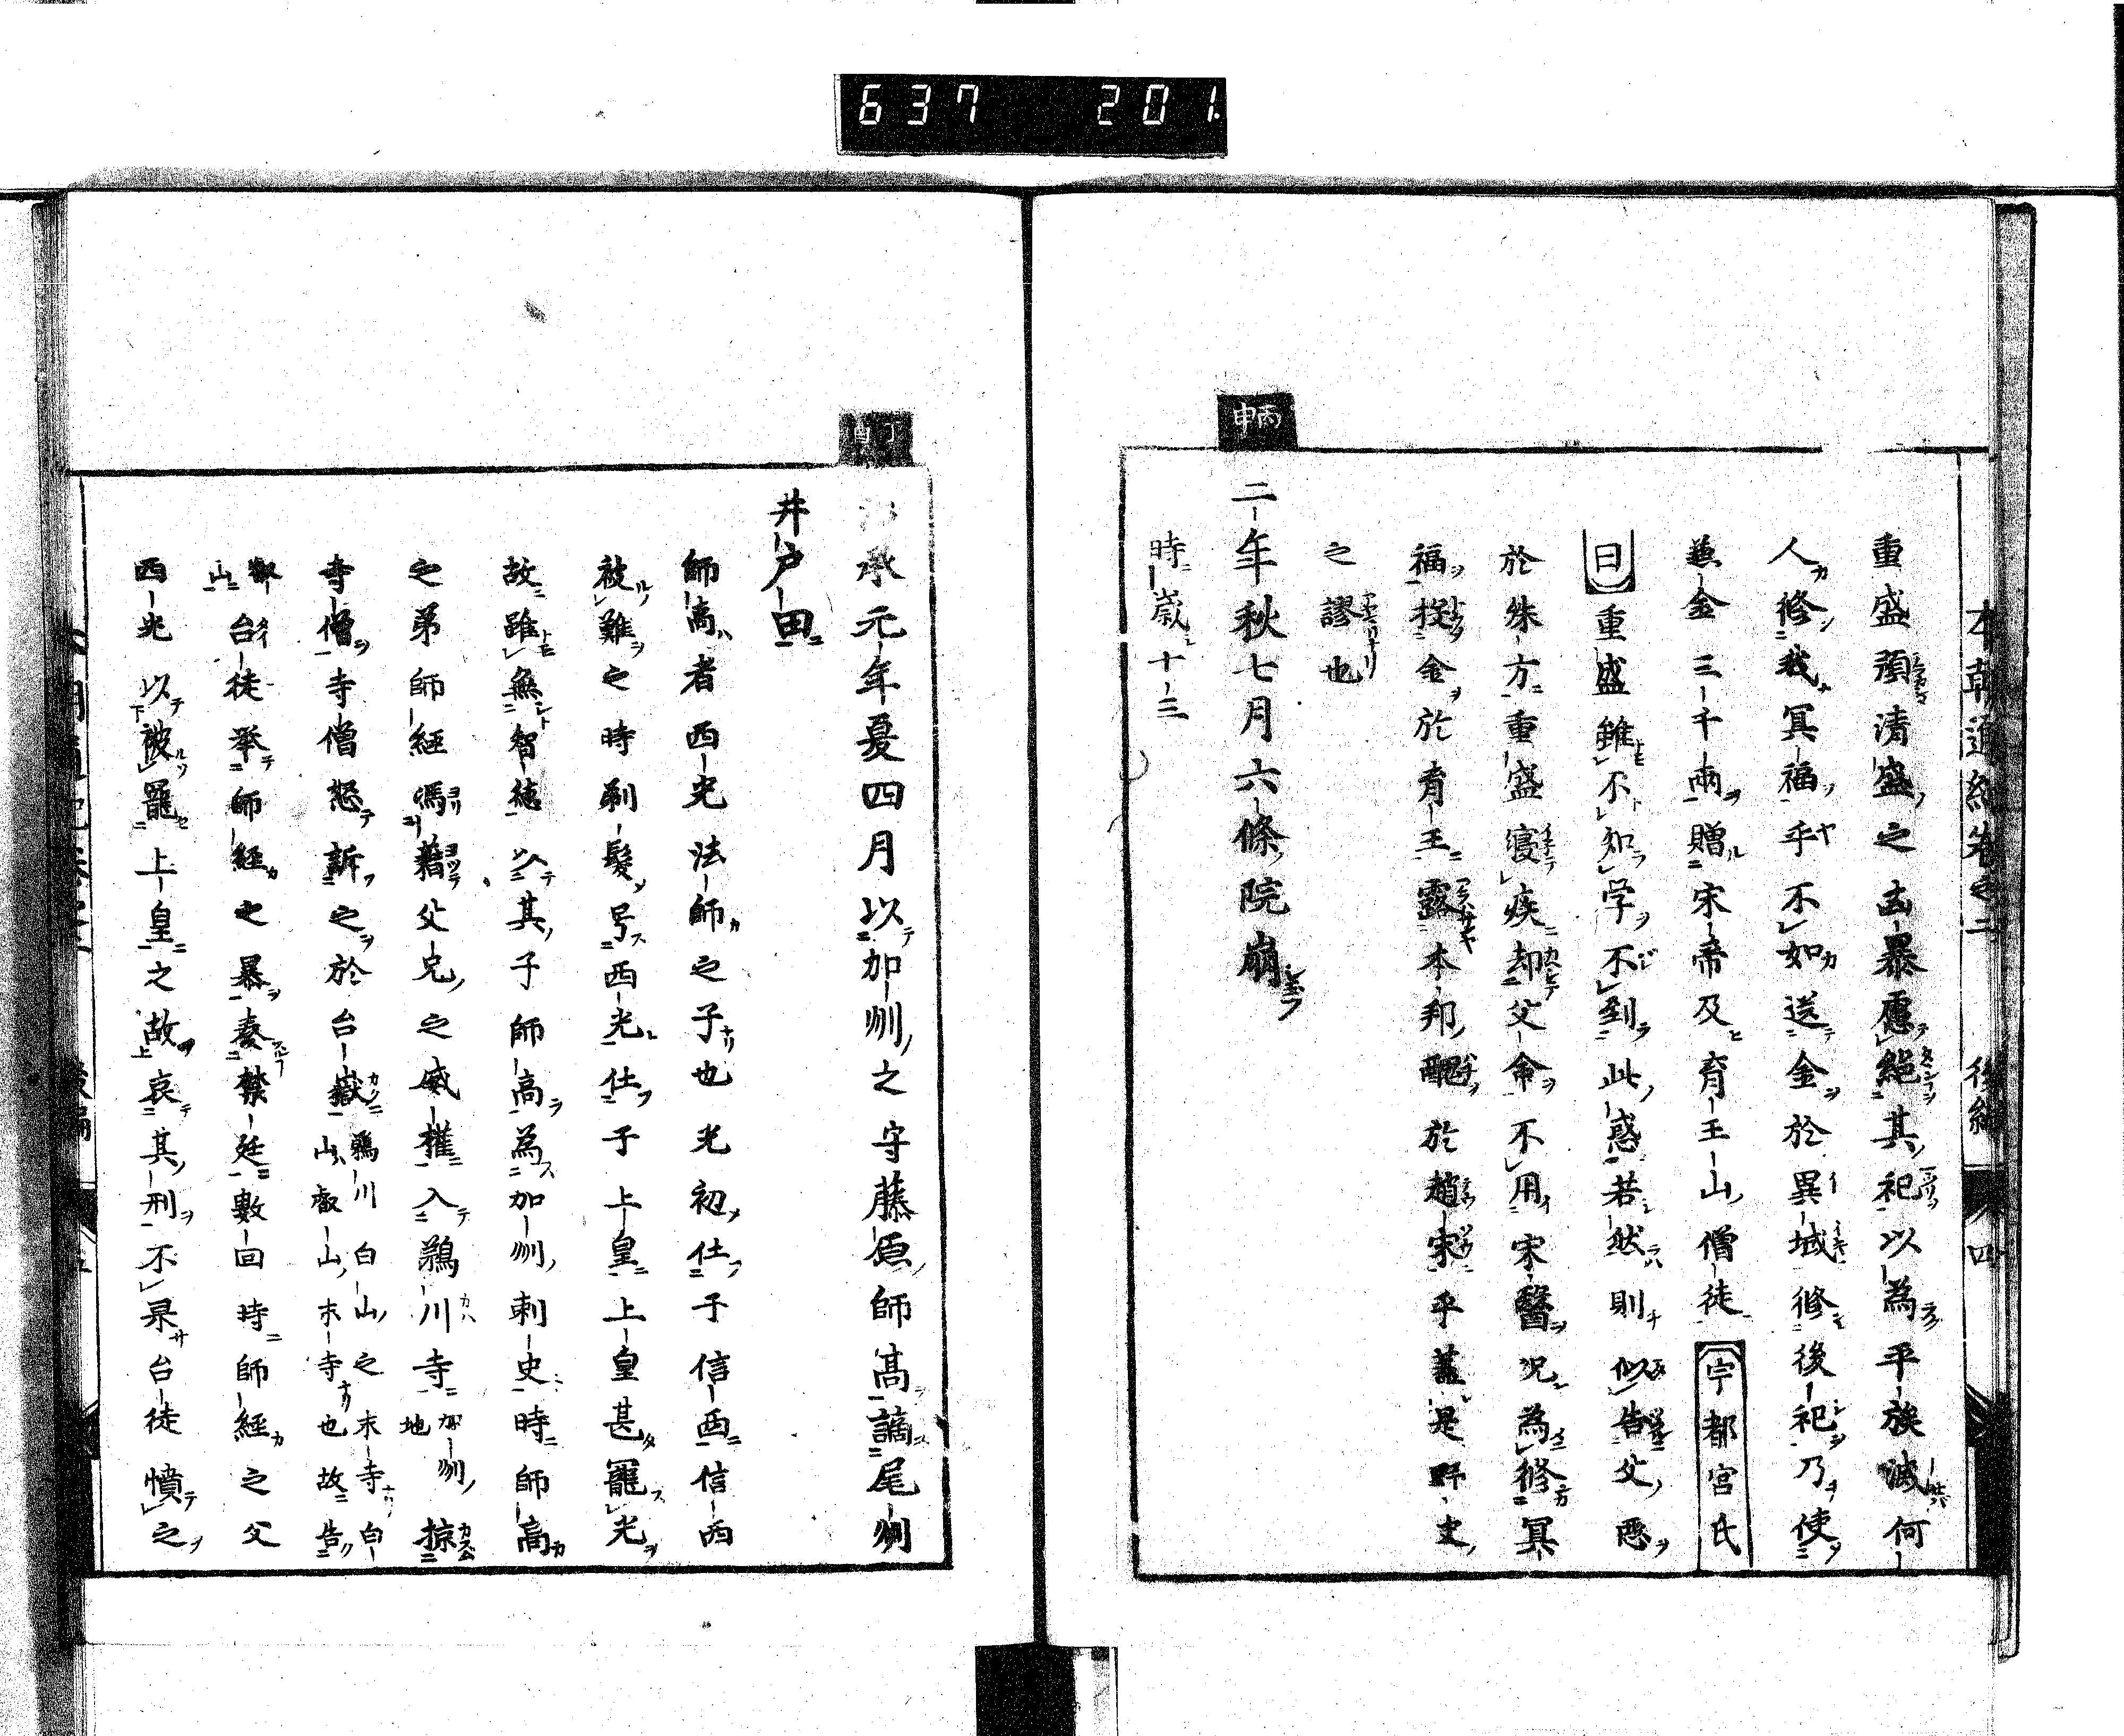 637 201.
本朝通紀卷之二 後編 四
重盛預清盛之凶暴慮絕其祀以為平族滅何
人修我冥福乎不如送金於異域修後祀乃使
無金三千兩贈宋帝及育王山僧徒宇都宮氏
曰重盛雖不知学不到此惑若然則似告父惡
於殊方重盛寝疾却父命不用宋醫况為修冥
福投金於育王露本邦醜於趙宋乎蓋是野史
之謬也
丙申
二年秋七月六條院崩
時歲十三
丁酉
承元年夏四月以加州之守藤原師高謫尾州
井戶田
師高者西光法師之子也光初仕于信西信西
被難之時剃髮号西光仕于上皇上皇甚寵光
故雖無智徳以其子師高為加州刺史時師高
之弟師經馮藉父兄之威權入鵜川寺加州地掠
寺僧寺僧怒訴之於台嶽鵜川白山之末寺白山叡山末寺也故告
叡山台徒举師經之暴奏禁廷數回時師經之父
西光以被寵上皇之故哀其刑不果台徒憤之